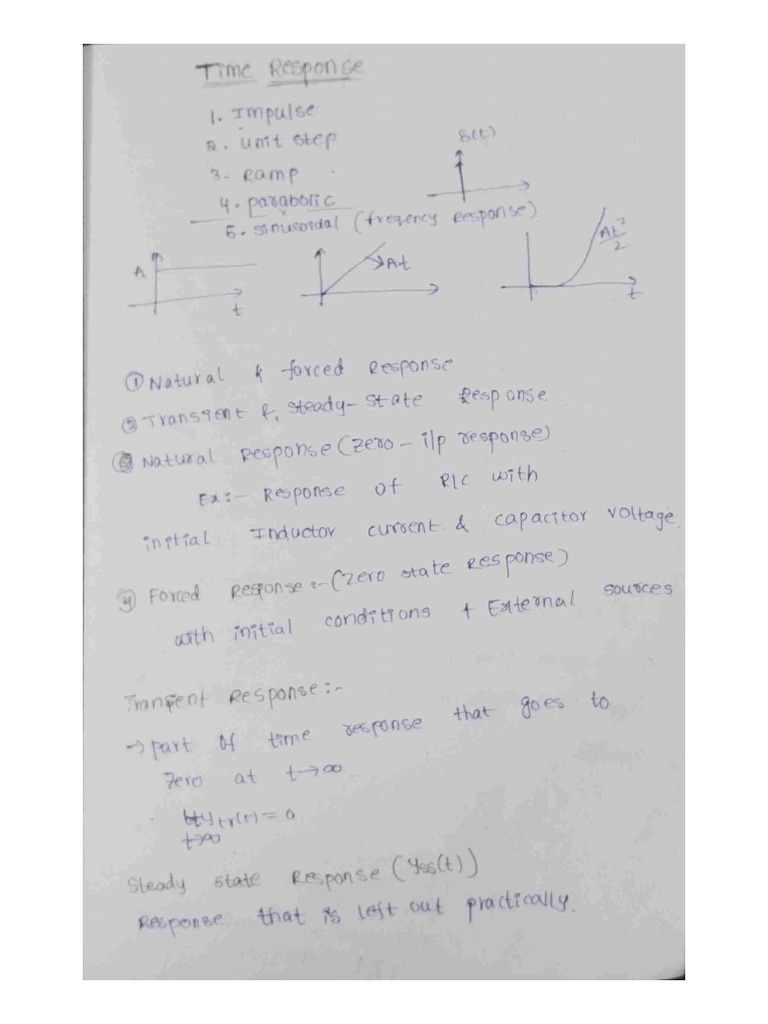 Time Response
1. Impulse
2. unit step
3. Ramp
4. parabolic
5. sinusoidal (freqency Response)
δ(t)
A
t
At
At²/2
t
① Natural & forced Response
② Transient & steady-state Response
③ Natural Response (zero - i/p response)
Ex:- Response of RLC with
initial Inductor current & capacitor voltage.
④ Forced Response:- (zero state Response)
with initial conditions + External sources
Transient Response:-
→ part of time response that goes to
zero at t→∞
Lt ytr(t) = 0
t→∞
Steady state Response (yss(t))
Response that is left out practically.